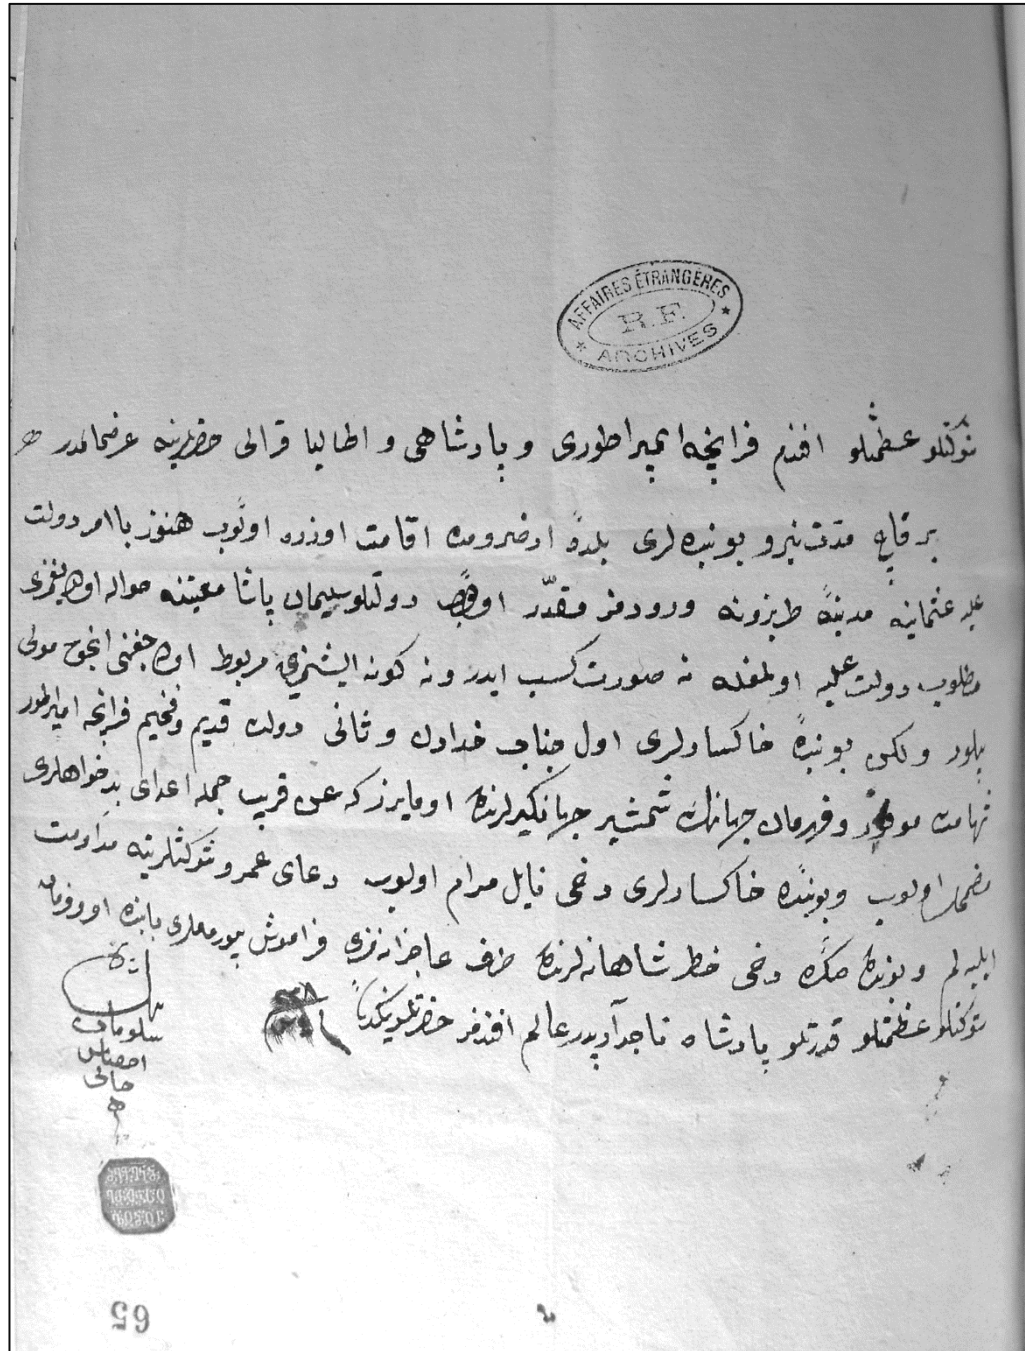 AFFAIRES ÉTRANGÈRES
R.F.
ARCHIVES
شوكتلو عظمتلو افندم فرانچه ايمپراطورى و پادشاهى و اطاليا قرالى حضرتلرينه عرضحالمدر
بر قاچ مدت بو بنده لرى بلدهٔ ارضرومده اقامت اوزره اولوب هنوز با امر دولت
عليه عثمانيه مدينهٔ طربزونه ورودمز مقدّر اولوب دولتلو سليمان پاشا معيتنه حواله اولديغمزى
مطلوب دولت عليه اولمغله نه صورت كسب ايدر و نه كونه ايشمزى مربوط اوله جغنى انجق مولى
بيلور ولكن بو بندهٔ خاكسارلرى اول جناب خدادن و ثانى دولت قديم و فخيم فرانچه امپراطور
و قهرمان جهانك شمشير جهانكيرلرندن اومايرز كه عن قريب جمله اعداى بدخواهلرى
مضمحل اولوب و بو بنده خاكسارلرى دخى نايل مرام اولوب دعاى عمر و شوكتلرينه مداومت
ايليه لم و بوندن صكره دخى خاطر شاهانه لرندن طرف عاجزانه مزى فراموش بيورمملرى بابنده امر و فرمان
شوكتلو عظمتلو قدرتلو پادشاه عالم افندمز حضرتلرينكدر
بنده
سلومان
خانى
65